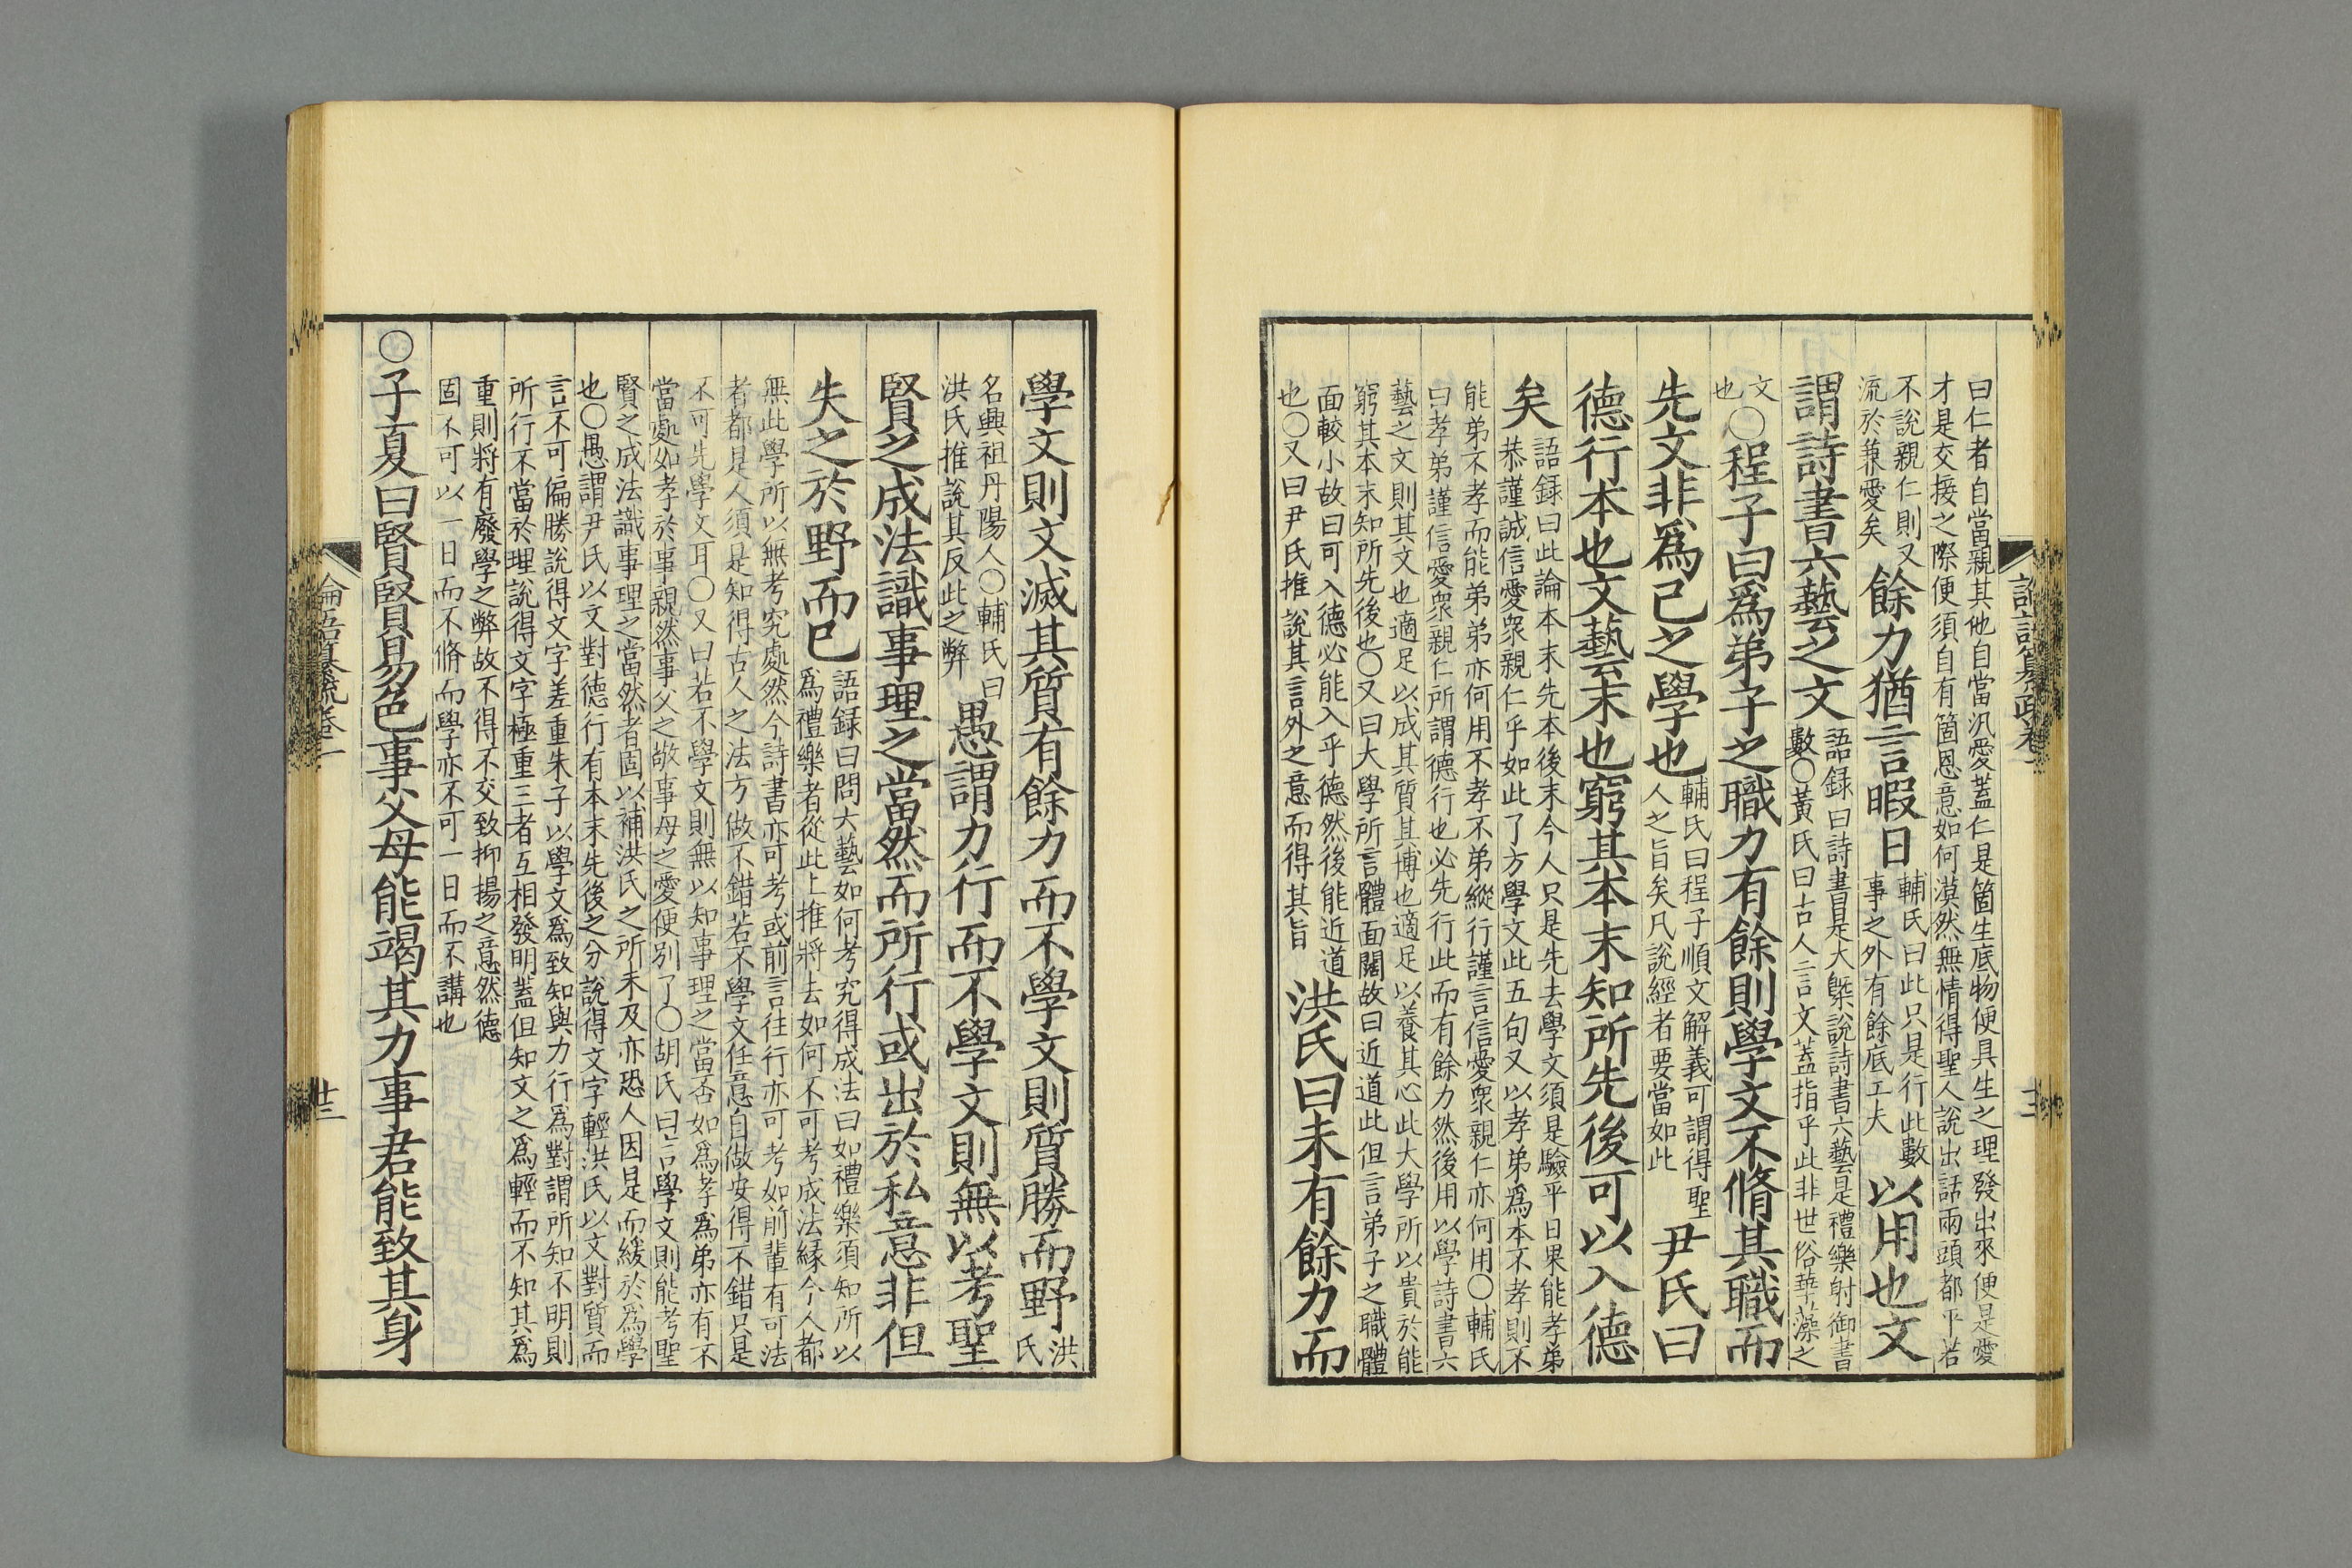 曰仁者自當親其他自當汎愛蓋仁是箇生底物便具生之理發出來便是愛
才是交接之際便須自有箇恩意如何漠然無情得聖人說出話兩頭都平若
不說親仁則又
流於兼愛矣
餘力猶言暇日
輔氏曰此只是行此數
事之外有餘底工夫
以用也文
謂詩書六藝之文
語録曰詩書是大槩說詩書六藝是禮樂射御書
數○黃氏曰古人言文蓋指乎此非世俗華藻之
文
也
○程子曰爲弟子之職力有餘則學文不脩其職而
先文非爲己之學也
輔氏曰程子順文解義可謂得聖
人之旨矣凡說經者要當如此
尹氏曰
德行本也文藝末也窮其本末知所先後可以入德
矣
語録曰此論本末先本後末今人只是先去學文須是驗平日果能孝弟
恭謹誠信愛衆親仁乎如此了方學文此五句又以孝弟爲本不孝則不
能弟不孝而能弟弟亦何用不孝不弟縱行謹言信愛衆親仁亦何用○輔氏
曰孝弟謹信愛衆親仁所謂德行也必先行此而有餘力然後用以學詩書六
藝之文則其文也適足以成其質其博也適足以養其心此大學所以貴於能
窮其本末知所先後也○又曰大學所言體面闊故曰近道此但言弟子之職體
面較小故曰可入德必能入乎德然後能近道
也○又曰尹氏推說其言外之意而得其旨
洪氏曰未有餘力而
學文則文滅其質有餘力而不學文則質勝而野
洪
氏
名興祖丹陽人○輔氏曰
洪氏推說其反此之弊
愚謂力行而不學文則無以考聖
賢之成法識事理之當然而所行或出於私意非但
失之於野而已
語録曰問六藝如何考究得成法曰如禮樂須知所以
爲禮樂者從此上推將去如何不可考成法緣今人都
無此學所以無考究處然今詩書亦可考或前言往行亦可考如前輩有可法
者都是人須是知得古人之法方做不錯若不學文任意自做安得不錯只是
不可先學文耳○又曰若不學文則無以知事理之當否如爲孝爲弟亦有不
當處如孝於事親然事父之敬事母之愛便別了○胡氏曰言學文則能考聖
賢之成法識事理之當然者固以補洪氏之所未及亦恐人因是而緩於爲學
也○愚謂尹氏以文對德行有本末先後之分說得文字輕洪氏以文對質而
言不可偏勝說得文字差重朱子以學文爲致知與力行爲對謂所知不明則
所行不當於理說得文字極重三者互相發明蓋但知文之爲輕而不知其爲
重則將有廢學之弊故不得不交致抑揚之意然德
固不可以一日而不脩而學亦不可一日而不講也
○子夏曰賢賢易色事父母能竭其力事君能致其身
論語纂疏卷一
廿三